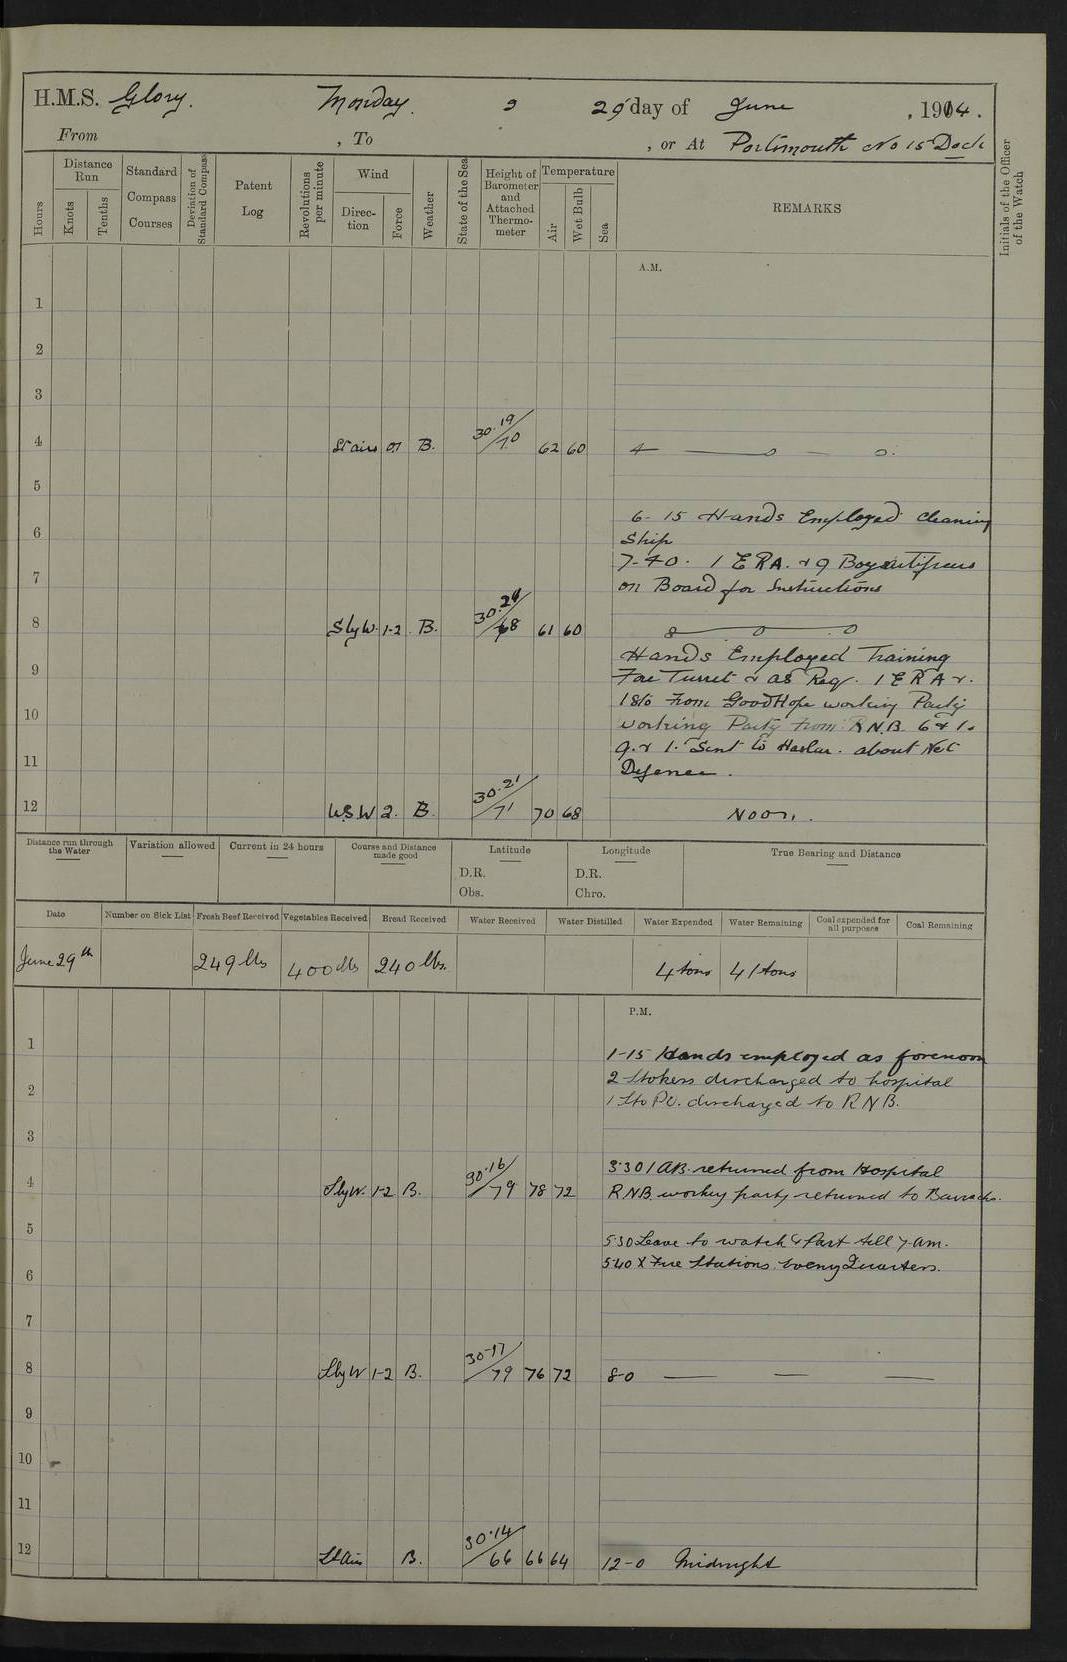 H.M.S. Glory. Monday. 29 day of June, 1914.
From , To , or At Portsmouth No 15 Dock
Hours
Distance Run
Knots
Tenths
Standard Compass Courses
Deviation of Standard Compass
Patent Log
Revolutions per minute
Wind
Direction
Force
Weather
State of the Sea
Height of Barometer and Attached Thermometer
Temperature
Air
Wet Bulb
Sea
REMARKS
Initials of the Officer of the Watch
A.M.
1
2
3
4 Lt airs 01 B. 30.19/70 62 60 4 — 0 — 0.
5
6-15 Hands Employed Cleaning
6 Ship
7-40. 1 ERA. & 9 Boy artificers
7 on Board for Instructions
8 SlyW. 1-2 B. 30.24/68 61 60 8 — 0 — 0
Hands Employed Training
9 Fore Turret & as Req. 1 ERA &
1 Sto from Good Hope working Party
10 working Party from RNB. 6 & 1.
9. & 1. Sent to Haslar. about Net
11 Defence.
12 W.S.W 2. B. 30.21/71 70 68 Noon.
Distance run through the Water
Variation allowed
Current in 24 hours
Course and Distance made good
Latitude
D.R.
Obs.
Longitude
D.R.
Chro.
True Bearing and Distance
Date Number on Sick List Fresh Beef Received Vegetables Received Bread Received Water Received Water Distilled Water Expended Water Remaining Coal expended for all purposes Coal Remaining
June 29th 249 lbs 400 lbs 240 lbs. 4 tons 41 tons
P.M.
1 1-15 Hands employed as forenoon
2 Stokers discharged to hospital
2 1 Sto PO. discharged to RNB.
3
3.30 1 AB. returned from Hospital
4 SlyW. 1-2 B. 30.16/79 78 72 RNB working party returned to Barracks.
5 5.30 Leave to watch & Part till 7 am.
6 5.40 X Fire Stations. Eveng Quarters.
7
8 SlyW 1-2 B. 30.17/79 76 72 8-0 — — —
9
10
11
12 Lt Airs B. 30.14/66 66 64 12-0 Midnight